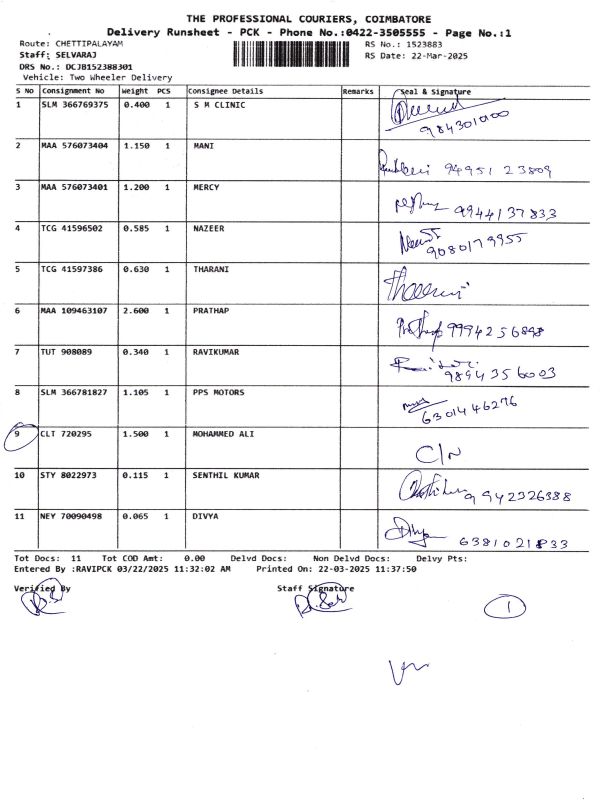 THE PROFESSIONAL COURIERS, COIMBATORE
Delivery Runsheet - PCK - Phone No.:0422-3505555 - Page No.:1
Route: CHETTIPALAYAM RS No.: 1523883
Staff: SELVARAJ RS Date: 22-Mar-2025
DRS No.: DCJB152388301
Vehicle: Two Wheeler Delivery
S No Consignment No Weight PCS Consignee Details Remarks Seal & Signature
1 SLM 366769375 0.400 1 S M CLINIC
2 MAA 576073404 1.150 1 MANI 94951 23809
3 MAA 576073401 1.200 1 MERCY 9944137833
4 TCG 41596502 0.585 1 NAZEER 9080179955
5 TCG 41597386 0.630 1 THARANI
6 MAA 109463107 2.600 1 PRATHAP 9994256898
7 TUT 908089 0.340 1 RAVIKUMAR 9894356003
8 SLM 366781827 1.105 1 PPS MOTORS 6301446276
9 CLT 720295 1.500 1 MOHAMMED ALI C/N
10 STY 8022973 0.115 1 SENTHIL KUMAR 9942326388
11 NEY 70090498 0.065 1 DIVYA Divya 6381021833
Tot Docs: 11 Tot COD Amt: 0.00 Delvd Docs: Non Delvd Docs: Delvy Pts:
Entered By :RAVIPCK 03/22/2025 11:32:02 AM Printed On: 22-03-2025 11:37:50
Verified By Staff Signature
1